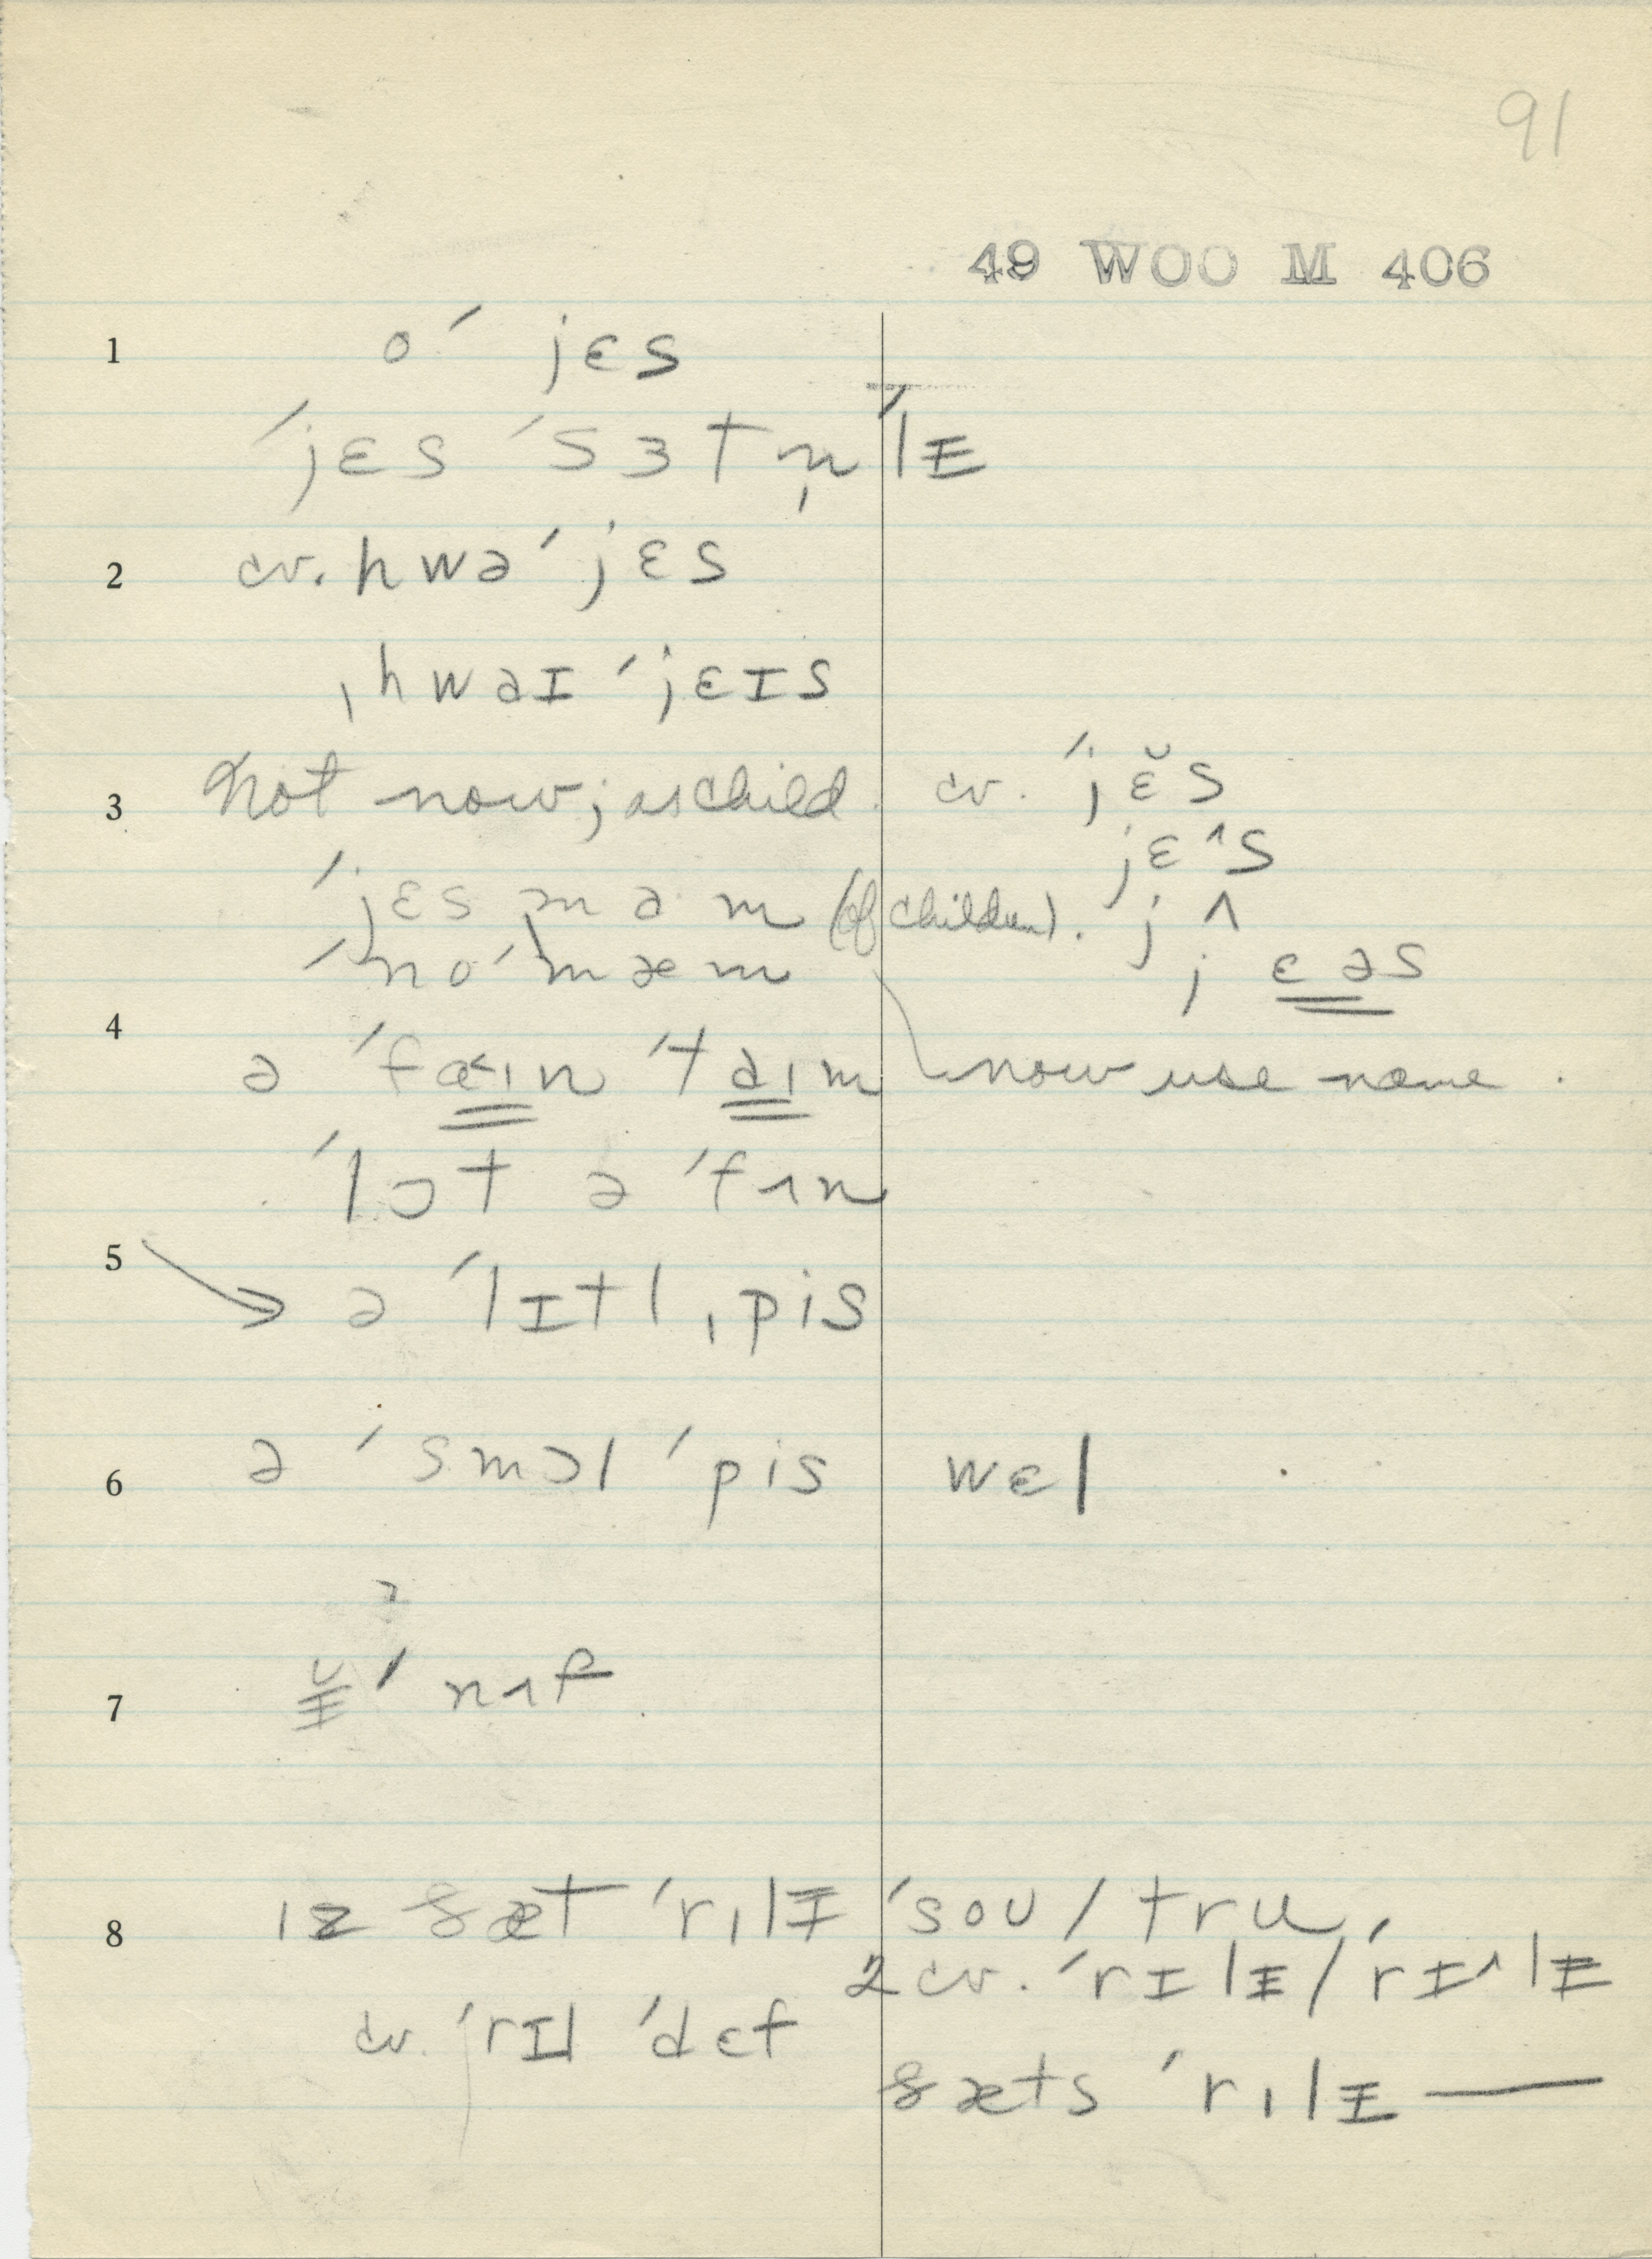 91
49 WOO M 406
1 o ˈjɛs
ˈjɛs ˈsɜtn̩ˈlɪ̵
2 cv. hwəˈjɛs
ˌhwaɪ ˈjɛɪs
3 Not now; as child. cv. ˈjɛ̆s
jɛ^s
ˈjɛs mam (of children). j ʌ
ˈno ˈmæm j ɛəs
4 ə ˈfa<ɪn ˈtaɪm now use name.
ˈlɔt ə ˈfʌn
5 → ə ˈlɪtl ˌpis
6 ə ˈsmɔl ˈpis wɛl
ə
7 ɪ̵̆ ˈnʌf
8 ɪz ðæt ˈrilɪ̵ ˈsoʊ / tru,
2 cv. ˈrɪlɪ̵ / ˈrɪ^lɪ̵
cv. ˈrɪl ˈdɛf
ðæts ˈrilɪ̵ —